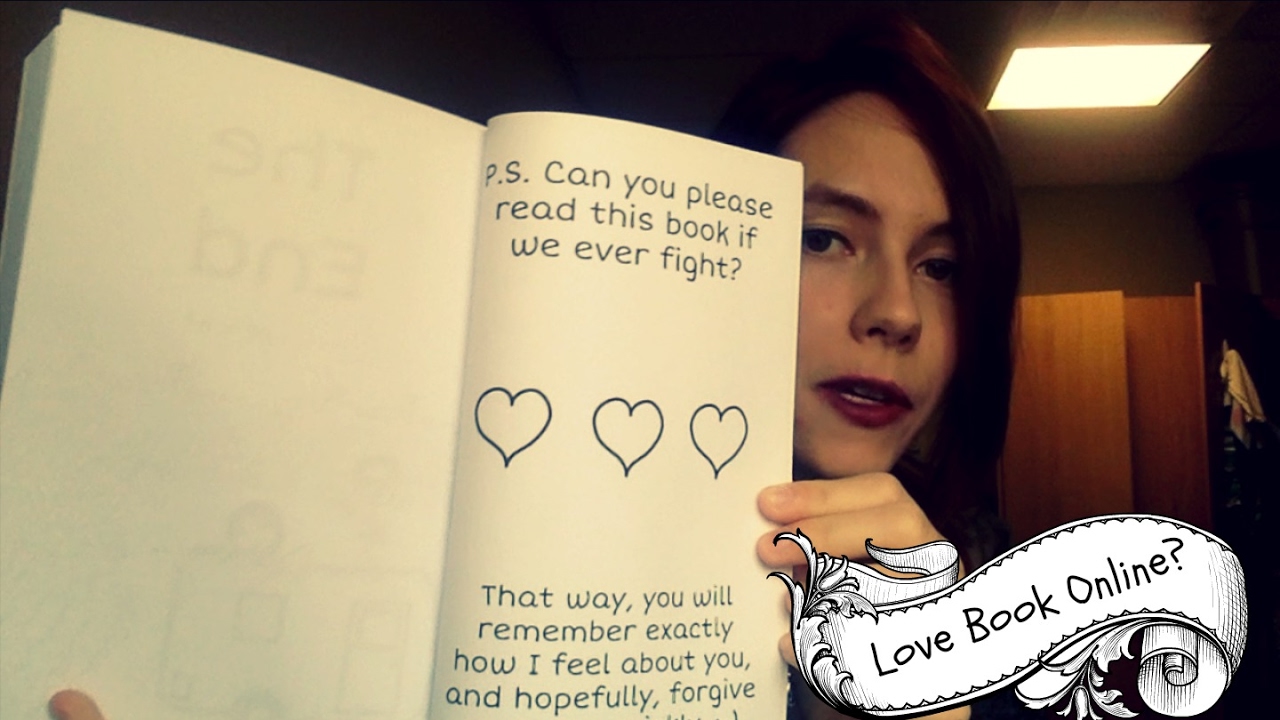 The
End
P.S. Can you please
read this book if
we ever fight?
That way, you will
remember exactly
how I feel about you,
and hopefully, forgive
Love Book Online?